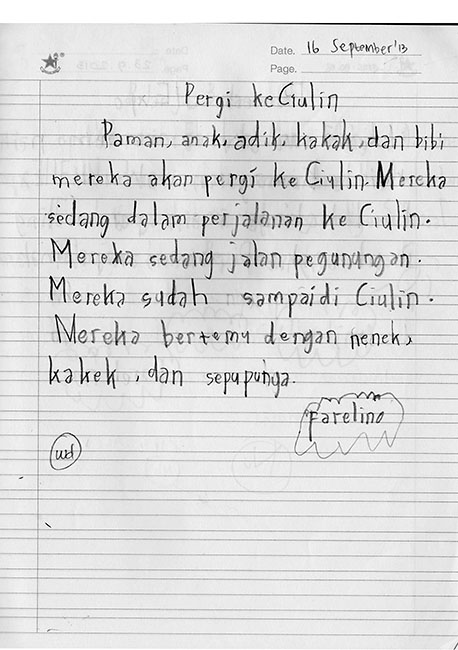 Date. 16 September'13
Page.
Pergi ke Ciulin
Paman, anak, adik, kakak, dan bibi
mereka akan pergi ke Ciulin. Mereka
sedang dalam perjalanan ke Ciulin.
Mereka sedang jalan pegunungan.
Mereka sudah sampaidi Ciulin.
Mereka bertemu dengan nenek,
kakek, dan sepupunya.
Farelino